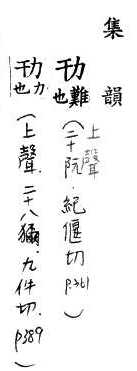 集韻
難也（上聲 二十阮．紀偃切 p.361）
力也（上聲．二十八獮．九件切．p389）